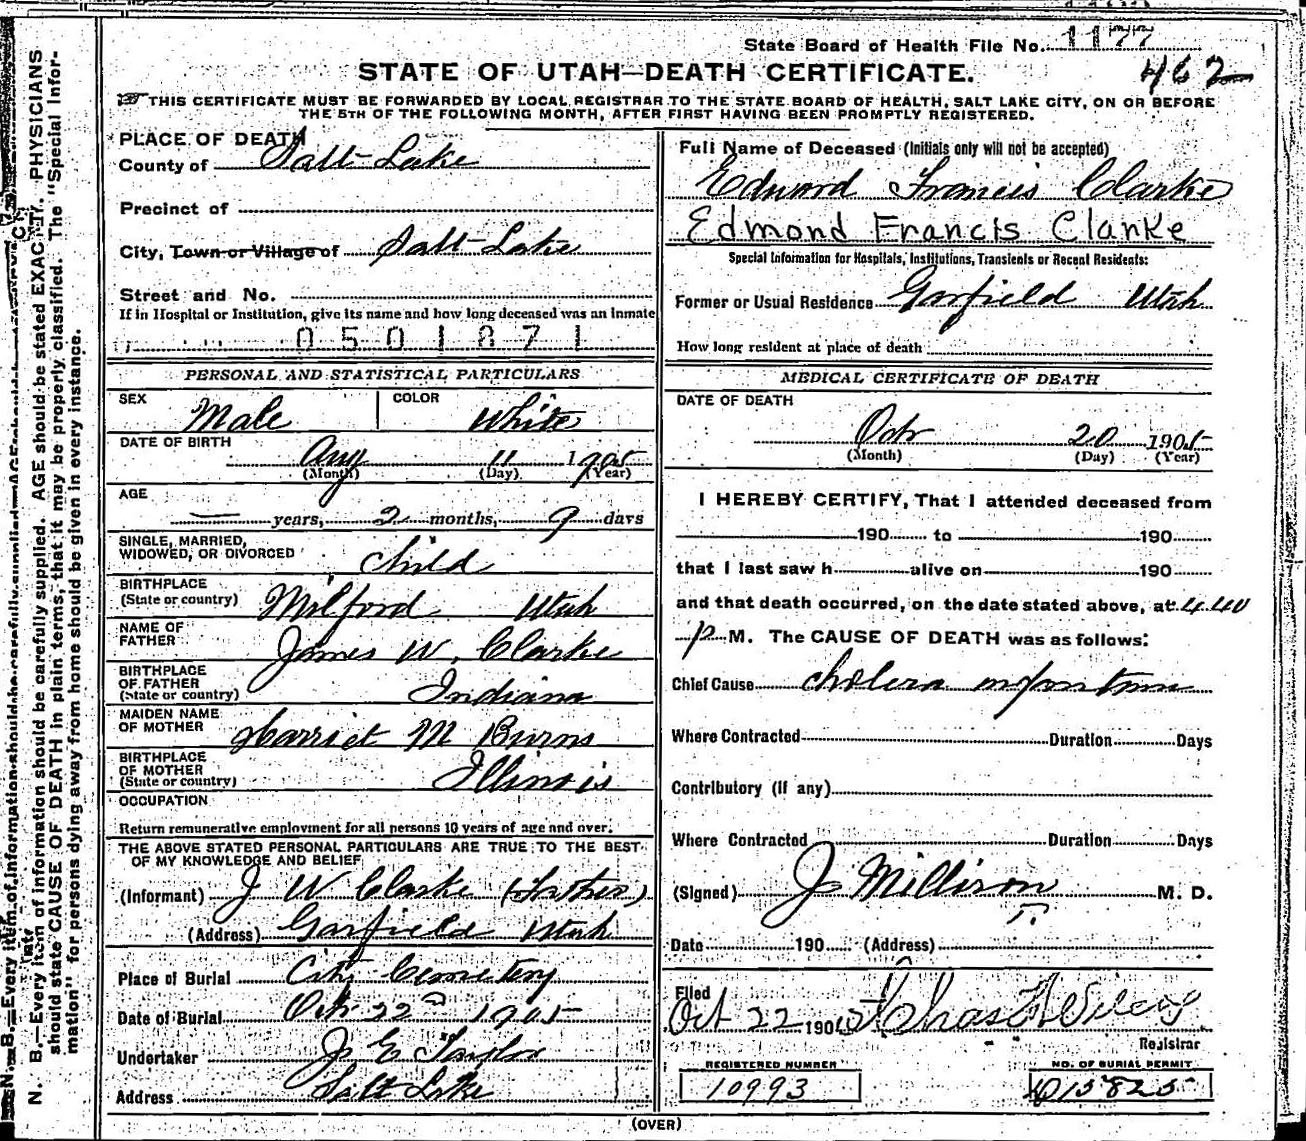 State Board of Health File No. 1177
462
STATE OF UTAH—DEATH CERTIFICATE.
THIS CERTIFICATE MUST BE FORWARDED BY LOCAL REGISTRAR TO THE STATE BOARD OF HEALTH, SALT LAKE CITY, ON OR BEFORE
THE 5TH OF THE FOLLOWING MONTH, AFTER FIRST HAVING BEEN PROMPTLY REGISTERED.
PLACE OF DEATH
County of Salt Lake
Precinct of
City, Town or Village of Salt Lake
Street and No.
If in Hospital or Institution, give its name and how long deceased was an inmate
0501871
PERSONAL AND STATISTICAL PARTICULARS
SEX Male COLOR White
DATE OF BIRTH
Aug 11 1905
(Month) (Day) (Year)
AGE
— years, 2 months, 9 days
SINGLE, MARRIED,
WIDOWED, OR DIVORCED child
BIRTHPLACE
(State or country) Milford Utah
NAME OF
FATHER James W. Clarke
BIRTHPLACE
OF FATHER
(State or country) Indiana
MAIDEN NAME
OF MOTHER Harriet M Burns
BIRTHPLACE
OF MOTHER
(State or country) Illinois
OCCUPATION
Return remunerative employment for all persons 10 years of age and over.
THE ABOVE STATED PERSONAL PARTICULARS ARE TRUE TO THE BEST
OF MY KNOWLEDGE AND BELIEF
(Informant) J W Clarke (Father)
(Address) Garfield Utah
Place of Burial City Cemetery
Date of Burial Oct 22nd 1905
Undertaker J E Taylor
Address Salt Lake
Full Name of Deceased (Initials only will not be accepted)
Edward Francis Clarke
Edmond Francis Clarke
Special Information for Hospitals, Institutions, Transients or Recent Residents:
Former or Usual Residence Garfield Utah
How long resident at place of death
MEDICAL CERTIFICATE OF DEATH
DATE OF DEATH
Oct 20 1905
(Month) (Day) (Year)
I HEREBY CERTIFY, That I attended deceased from
190 to 190
that I last saw h alive on 190
and that death occurred, on the date stated above, at 4.40
p M. The CAUSE OF DEATH was as follows:
Chief Cause cholera infantum
Where Contracted Duration Days
Contributory (if any)
Where Contracted Duration Days
(Signed) J Millison M. D.
Date 190 (Address)
Filed
Oct 22 1905 Chas
Registrar
REGISTERED NUMBER
10993
NO. OF BURIAL PERMIT
15825
(OVER)
N. B.—Every item of information should be carefully supplied. AGE should be stated EXACTLY. PHYSICIANS
should state CAUSE OF DEATH in plain terms, that it may be properly classified. The "Special Infor-
mation" for persons dying away from home should be given in every instance.